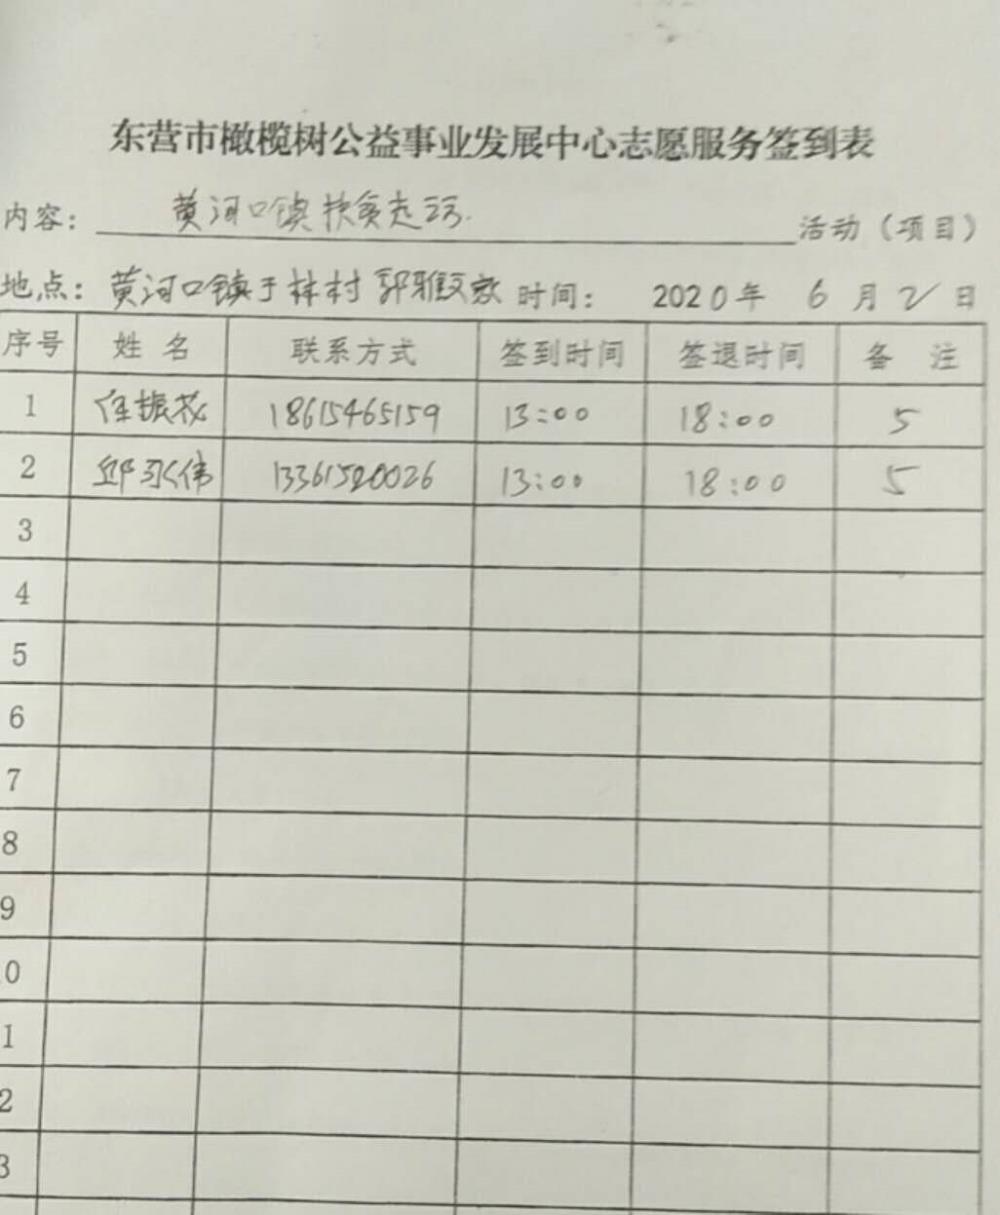 东营市橄榄树公益事业发展中心志愿服务签到表
内容： 黄河口镇扶贫走访. 活动（项目）
地点：黄河口镇于林村 郭雅 时间： 2020年 6 月 2 日
序号 姓 名 联系方式 签到时间 签退时间 备 注
1 任振 18615465159 13:00 18:00 5
2 邱永伟 13361520026 13:00 18:00 5
3
4
5
6
7
8
9
0
1
2
3